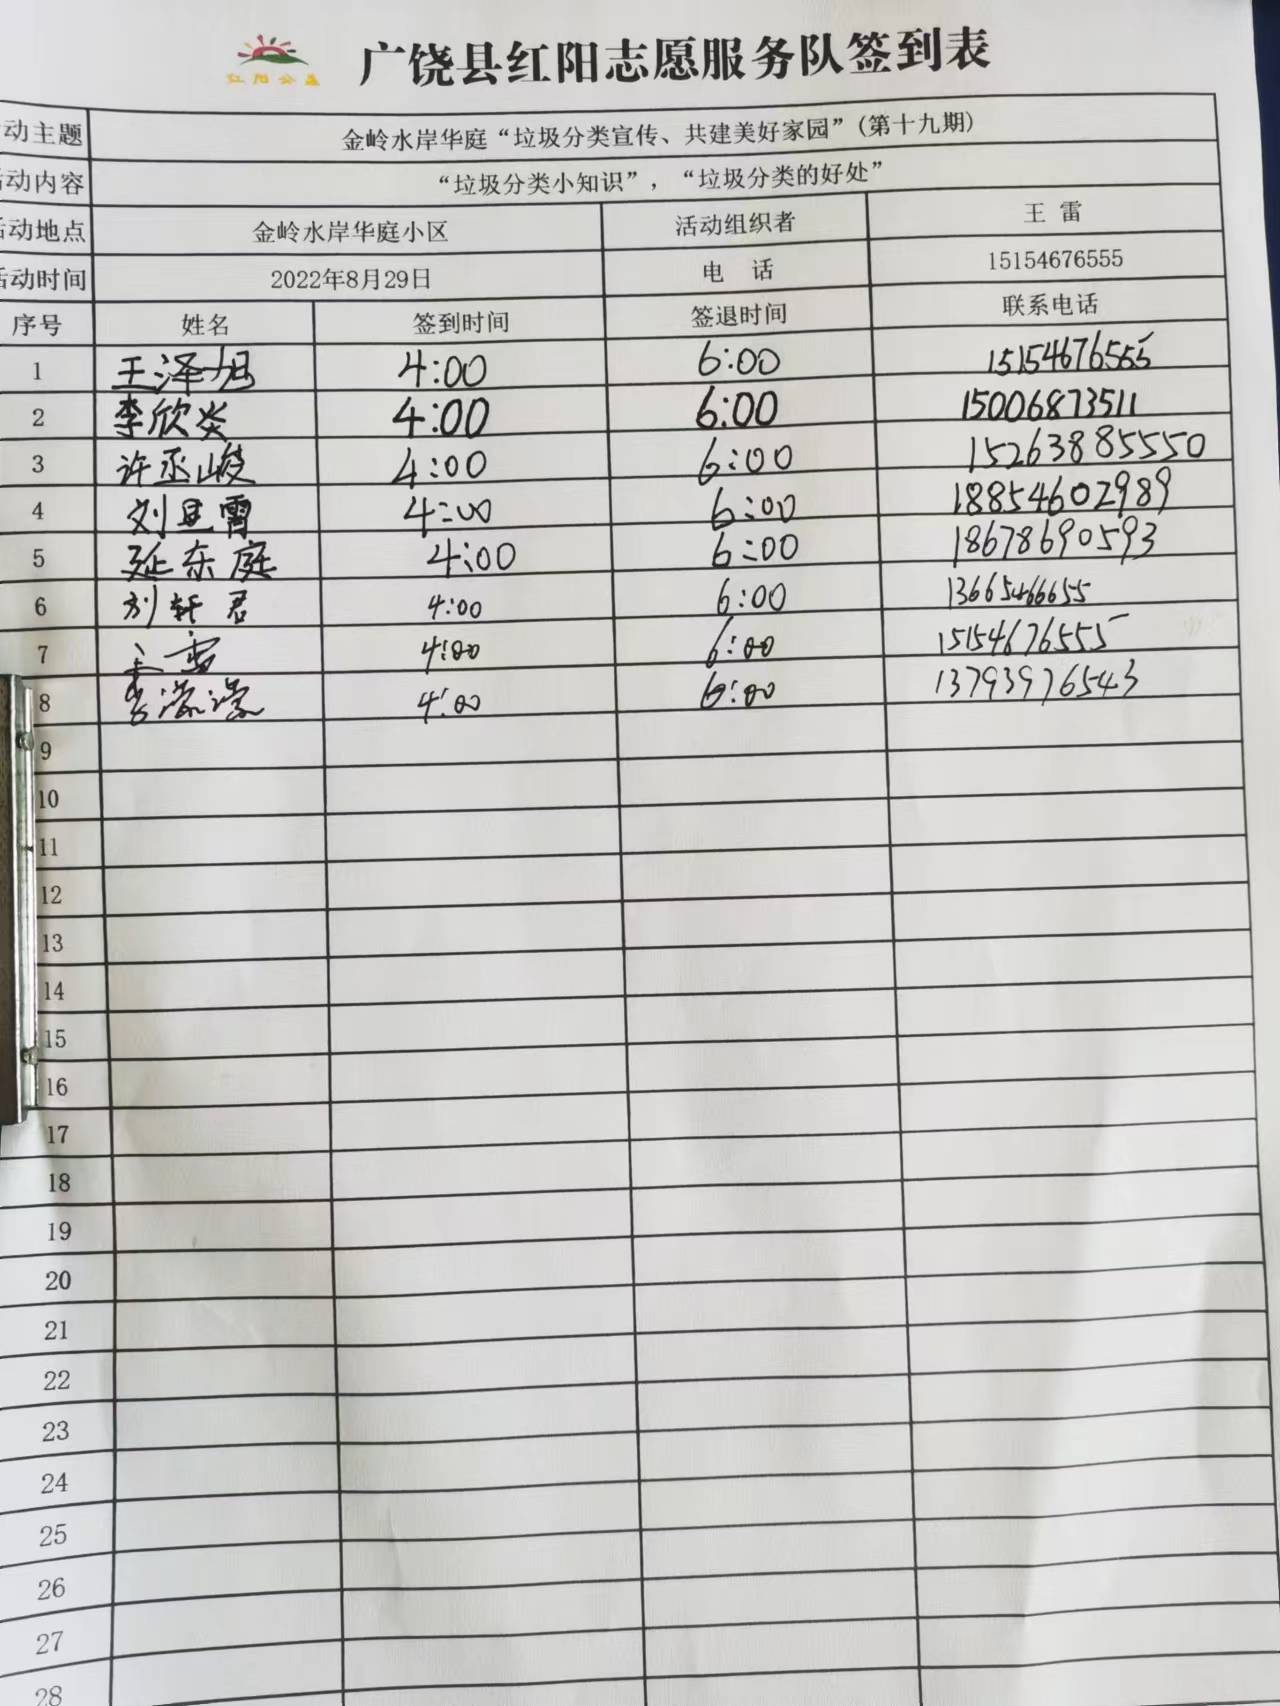 红阳公益
广饶县红阳志愿服务队签到表
动主题 金岭水岸华庭“垃圾分类宣传、共建美好家园”(第十九期)
活动内容 “垃圾分类小知识”，“垃圾分类的好处”
活动地点 金岭水岸华庭小区 活动组织者 王 雷
活动时间 2022年8月29日 电 话 15154676555
序号 姓名 签到时间 签退时间 联系电话
1 王泽旭 4:00 6:00 15154676555
2 李欣炎 4:00 6:00 15006873511
3 许丞峻 4:00 6:00 15263885550
4 刘昱霄 4:00 6:00 18854602989
5 延东庭 4:00 6:00 18678690593
6 刘轩君 4:00 6:00 13665466655
7 王雷 4:00 6:00 15154676555
8 4:00 6:00 13793976543
9
10
11
12
13
14
15
16
17
18
19
20
21
22
23
24
25
26
27
28